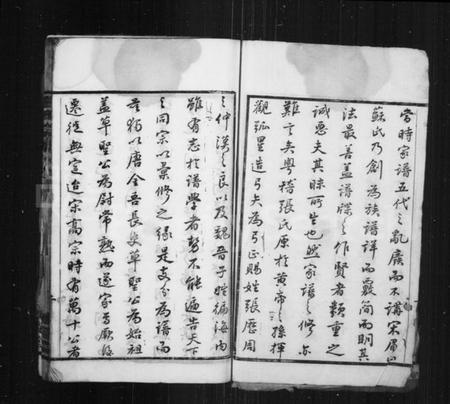 當時家譜五代之亂廢而不講宋眉山
蘇氏乃創為族譜詳而覈簡而明其
法最善蓋譜牒之作賢者類重之
誠惡夫其昧所生也然家譜之修亦
難言矣粵稽張氏原於黃帝之孫揮
觀弧星造弓矢為弓正賜姓張歷周
之仲漢之良以及魏晉子姓徧海內
雖有志於譜學者勢不能遍告天下
之同宗以彙修之緣是支分為譜而
吾獨以唐金吾長史草聖公為始祖
蓋草聖公為尉常熟而遂家焉厥後
遷徙無定迨宋高宗時有萬十公者